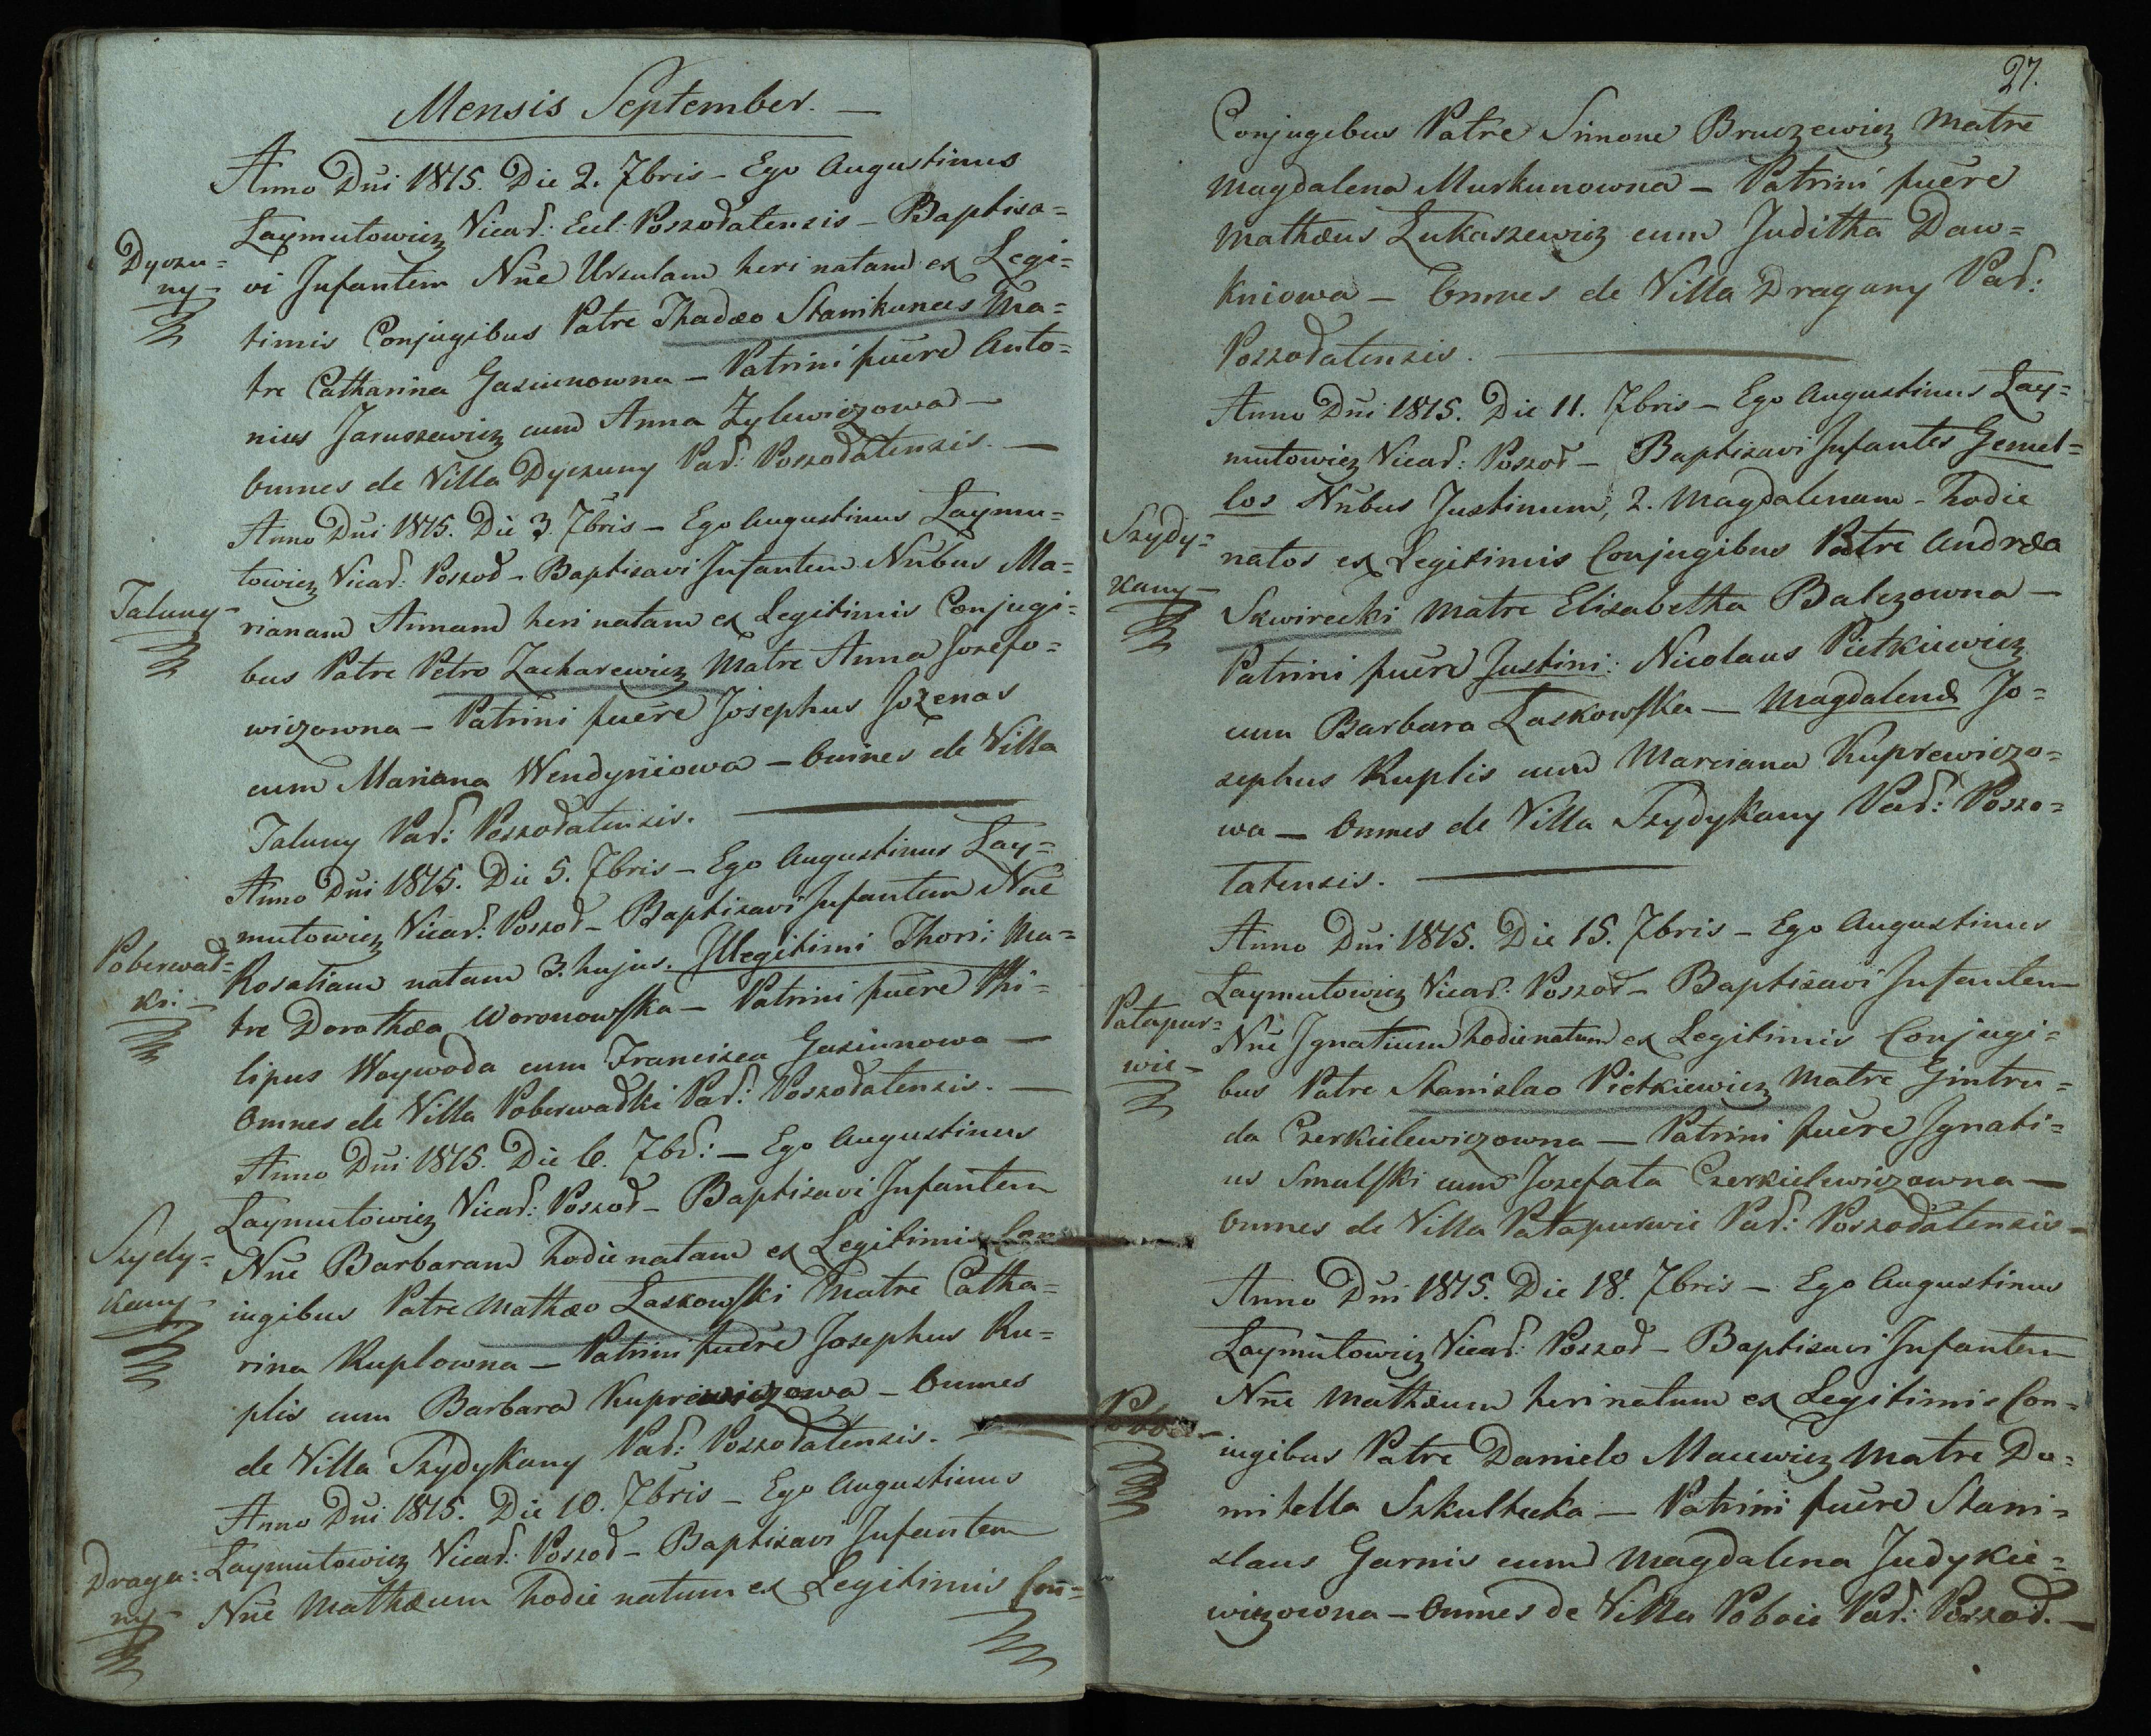 Mensis September. —
Anno Dni 1815. Die 2. 7bris — Ego Augustinus
Laymutowicz Vicar: Eccl: Poszodatensis — Baptisa=
Dyczu=
ny —
vi Infantem Nne Ursulam heri natam ex Legi=
timis Conjugibus Patre Thadæo Stanikunas Ma=
tre Catharina Gasiunowna — Patrini fuere Anto=
nius Jaruszewicz cum Anna Żylewiczowa —
Omnes de Villa Dyczuny Par: Poszodatensis. —
Anno Dni 1815. Die 3. 7bris — Ego Augustinus Laymu=
towicz Vicar: Poszod — Baptisavi Infantem Nnbus Ma=
Taluny —
rianam Annam heri natam ex Legitimis Conjugi=
bus Patre Petro Zacharewicz Matre Anna Jozefo=
wiczowna — Patrini fuere Josephus Jozenas
cum Mariana Wendyniowa — Omnes de Villa
Taluny Par: Poszodatensis. —
Anno Dni 1815. Die 5. 7bris — Ego Augustinus Lay=
mutowicz Vicar: Poszod — Baptisavi Infantem Nne
Poberwad=
ki —
Rosaliam natam 3. hujus. Illegitimi Thori: Ma=
tre Dorothæa Woronowska — Patrini fuere Phi=
lipus Woywoda cum Francisca Gasiunowa —
Omnes de Villa Poberwadki Par: Poszodatensis. —
Anno Dni 1815. Die 6. 7br: — Ego Augustinus
Laymutowicz Vicar: Poszod — Baptisavi Infantem
Szydy=
kany —
Nne Barbaram hodie natam ex Legitimis Con
iugibus Patre Mathæo Laskowski Matre Catha=
rina Kuplowna — Patrini fuere Josephus Ku=
plis cum Barbara Kuprewiczowa — Omnes
de Villa Szydykany Par: Poszodatensis. —
Anno Dni 1815. Die 10. 7bris — Ego Augustinus
Draga=
ny —
Laymutowicz Vicar: Poszod — Baptisavi Infantem
Nne Mathæum hodie natum ex Legitimis Con=
27.
Conjugibus Patre Simone Bruczewicz Matre
Magdalena Murkunowna — Patrini fuere
Mathæus Łukaszewicz cum Juditha Daw=
kniowa — Omnes de Villa Dragany Par:
Poszodatensis. —
Anno Dni 1815. Die 11. 7bris — Ego Augustinus Lay=
mutowicz Vicar: Poszod — Baptisavi Infantes Gemel=
los Nnbus Justinum, 2. Magdalenam — hodie
Szydy=
kany —
natos ex Legitimis Conjugibus Patre Andræa
Skwirecki Matre Elisabetha Balczowna —
Patrini fuere Justini: Nicolaus Pietkiewicz
cum Barbara Laskowska — Magdalenæ Jo=
sephus Kuplis cum Marciana Kuprewiczo=
wa — Omnes de Villa Szydykany Par: Poszo=
tatensis. —
Anno Dni 1815. Die 15. 7bris — Ego Augustinus
Laymutowicz Vicar: Poszod — Baptisavi Infantem
Patapur=
wie —
Nne Ignatium hodie natum ex Legitimis Conjugi=
bus Patre Stanislao Pietkiewicz Matre Gintru=
da Czerkielewiczowna — Patrini fuere Ignati=
us Smulski cum Jozefata Czerkielewiczowna —
Omnes de Villa Patapurwie Par: Poszodatensis —
Anno Dni 1815. Die 18. 7bris — Ego Augustinus
Laymutowicz Vicar: Poszod — Baptisavi Infantem
Nne Mathæum heri natum ex Legitimis Con=
iugibus Patre Danielo Macewicz Matre Do=
mitella Szkultecka — Patrini fuere Stani=
slaus Garnis cum Magdalena Judykie=
wiczowna — Omnes de Villa Poboie Par: Poszod. —